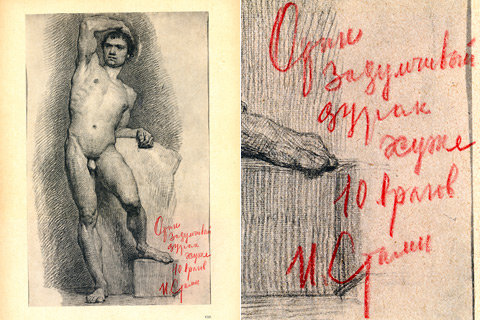 Один
задумчивый
дурак
хуже
10 врагов
И. Сталин
Один
задумчивый
дурак
хуже
10 врагов
И. Сталин